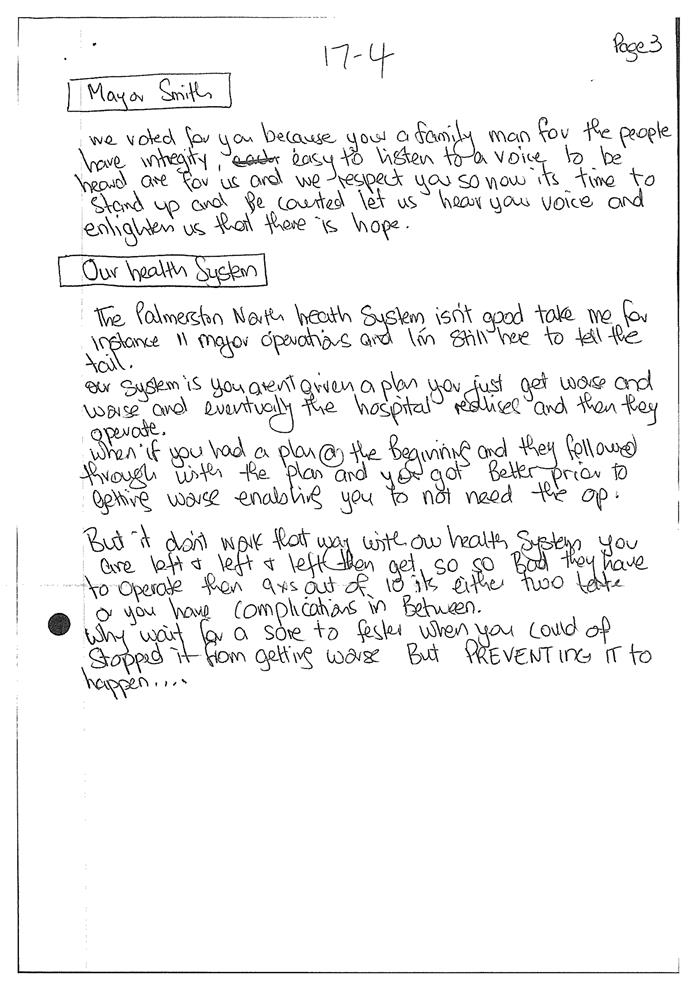 17-4
Page 3
Mayor Smith
We voted for you because your a family man for the people
have integity, easy to listen to a voice to be
heard are for us and we respect you so now its time to
Stand up and Be counted let us hear your voice and
enlighten us that there is hope.
Our health System
The Palmerston North health System isn't good take me for
instance 11 major operations and I'm still here to tell the
tail.
our System is you arent given a plan you just get worse and
worse and eventually the hospital realises and then they
operate.
When if you had a plan @ the Beginning and they followed
through with the plan and you got Better prior to
getting worse enabling you to not need the op.
But it don't work that way with our health System you
are left & left & left then get so so Bad they have
to operate then 9xs out of 10 its either two late
or you have complications in Between.
Why wait for a sore to fester when you could of
Stopped it from getting worse But PREVENTING IT to
happen....